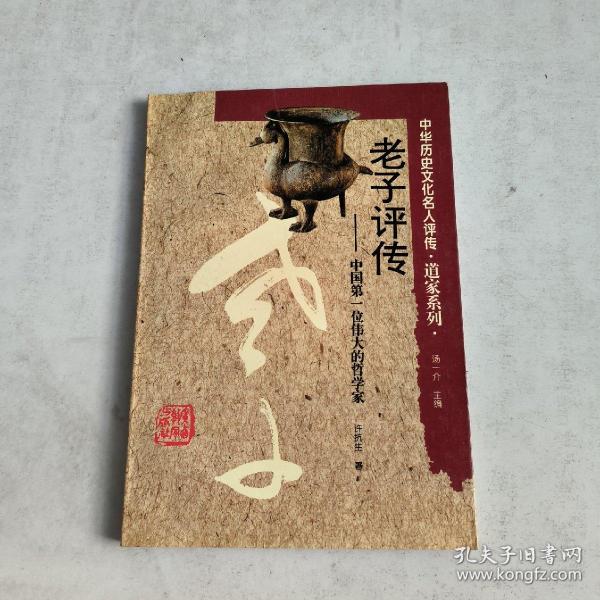 中华历史文化名人评传·道家系列·
汤一介 主编
老子评传
——中国第一位伟大的哲学家
许抗生 著
老子
孔夫子旧书网
www.kongfz.com